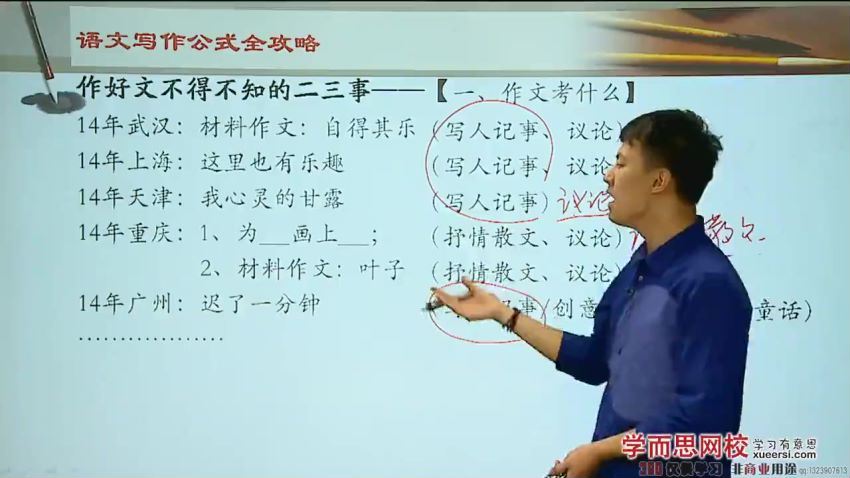 语文写作公式全攻略
作好文不得不知的二三事——【一、作文考什么】
14年武汉：材料作文：自得其乐（写人记事、议论）
14年上海：这里也有乐趣（写人记事、议论
14年天津：我心灵的甘露（写人记事）议论
14年重庆：1、为___画上___；（抒情散文、议论）散文
2、材料作文：叶子（抒情散文、议论
14年广州：迟了一分钟 事（创意 童话）
………………
学而思网校 学习有意思
xueersi.com
仅供学习 非商业用途 qq:1323907613